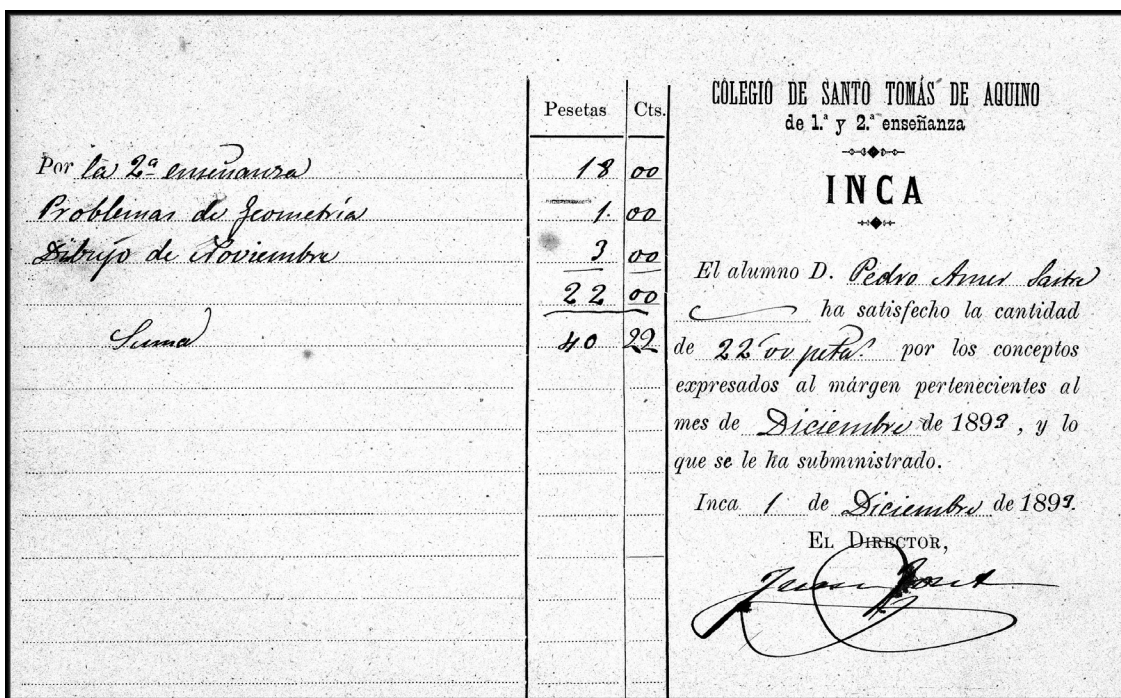 Pesetas Cts.
Por la 2ª enseñanza 18 00
Problemas de Geometría 1. 00
Dibujo de Noviembre 3 00
22 00
Suma 40 22
COLEGIO DE SANTO TOMÁS DE AQUINO
de 1.ª y 2.ª enseñanza
INCA
El alumno D. Pedro Amer Sastre
ha satisfecho la cantidad
de 22'00 petas. por los conceptos
expresados al márgen pertenecientes al
mes de Diciembre de 1893, y lo
que se le ha subministrado.
Inca 1 de Diciembre de 1893.
EL DIRECTOR,
Juan